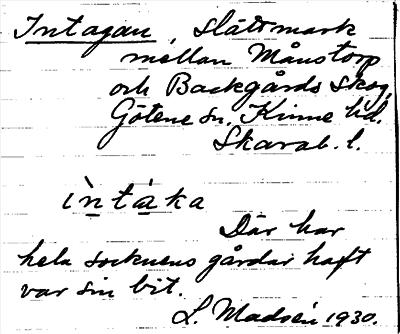 Intagan, slåttmark
mellan Månstorp
och Backgårds skog,
Götene sn. Kinne hd.
Skarab. l.
ìntàka
Där har
hela socknens gårdar haft
var sin bit.
L. Madsén 1930.